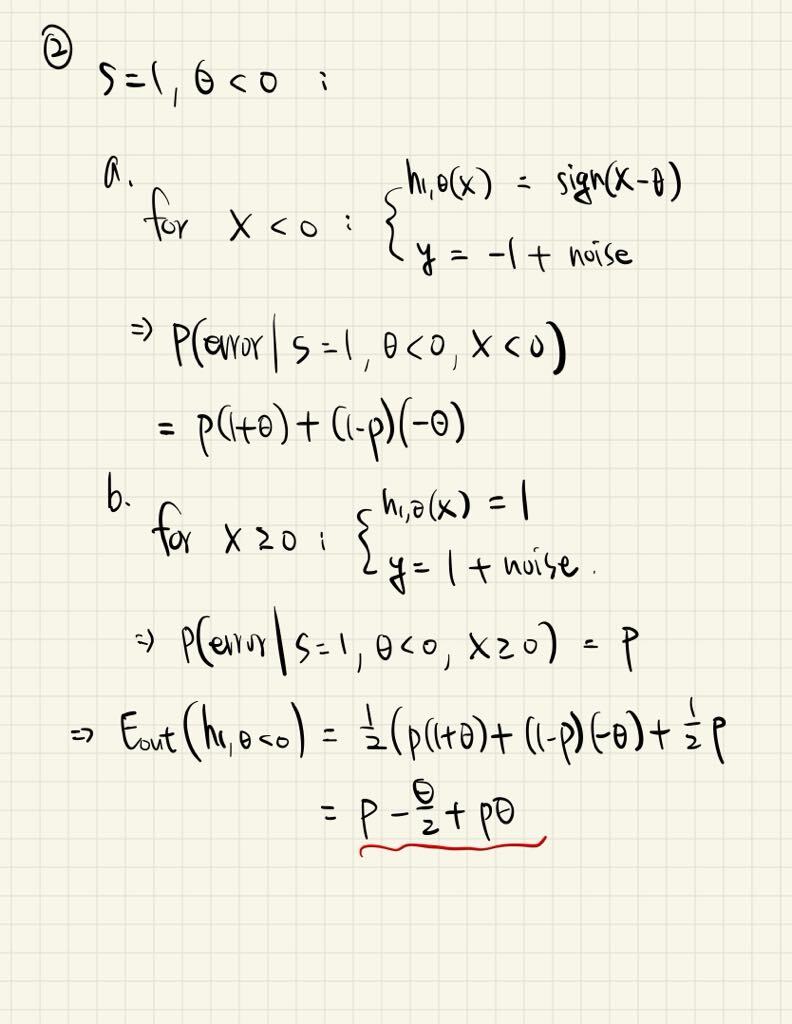 ②
s=1, θ<0 :
a.
for x<0 : { h₁,θ(x) = sign(x-θ)
y = -1 + noise
⇒ P(error | s=1, θ<0, x<0)
= p(1+θ) + (1-p)(-θ)
b.
for x≥0 : { h₁,θ(x) = 1
y = 1 + noise.
⇒ P(error | s=1, θ<0, x≥0) = p
⇒ Eout(h₁,θ<0) = 1/2 (p(1+θ) + (1-p)(-θ) + 1/2 p
= p - θ/2 + pθ